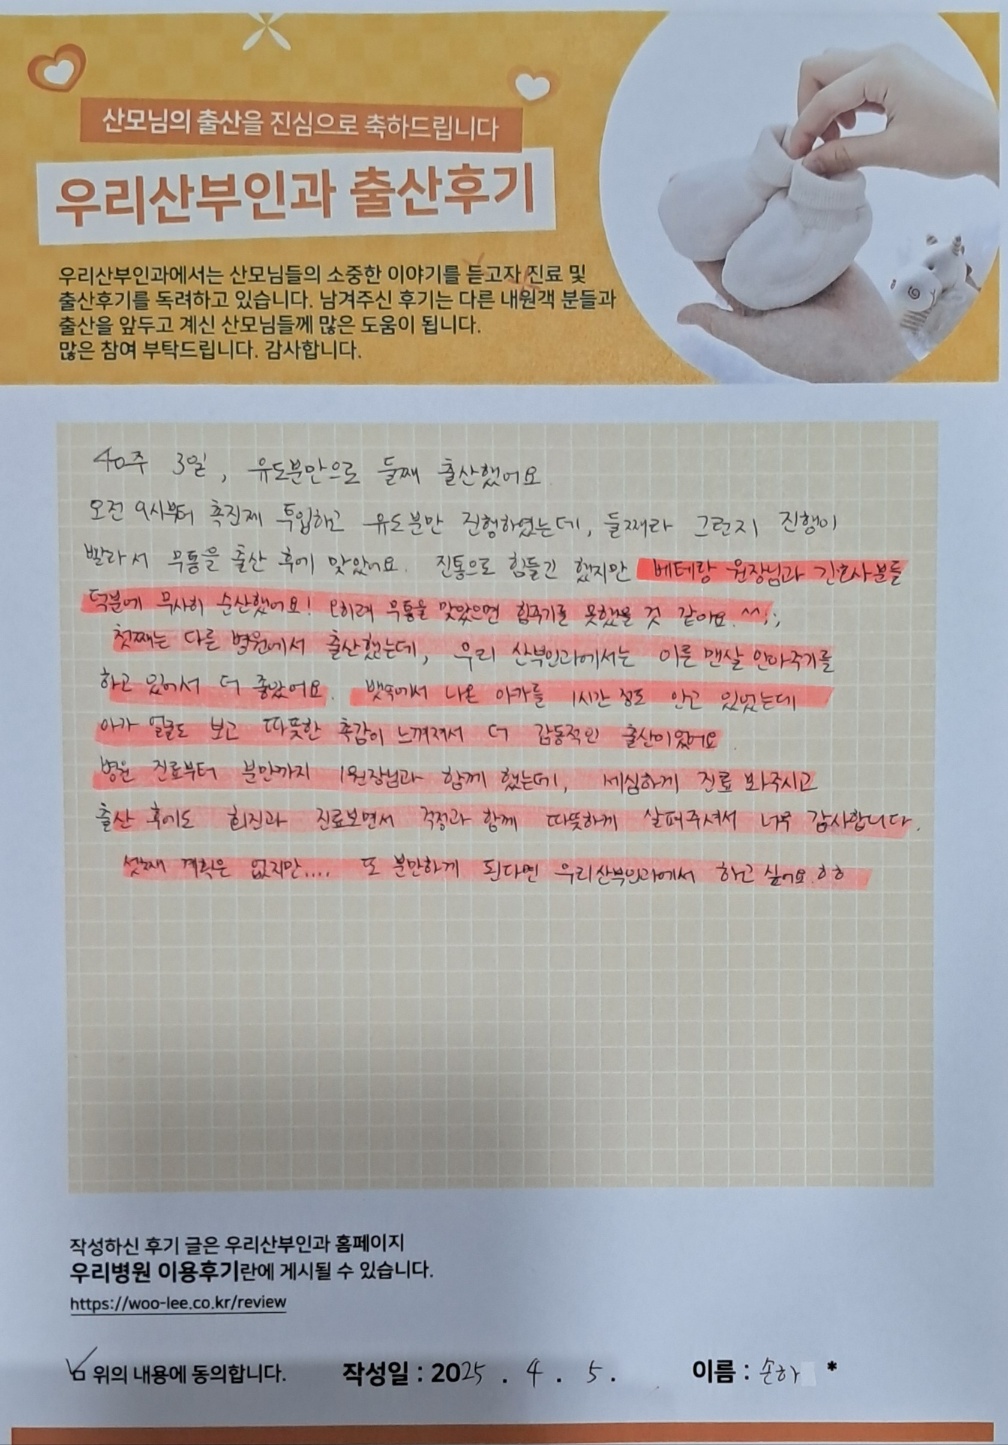 산모님의 출산을 진심으로 축하드립니다
우리산부인과 출산후기
우리산부인과에서는 산모님들의 소중한 이야기를 듣고자 진료 및
출산후기를 독려하고 있습니다. 남겨주신 후기는 다른 내원객 분들과
출산을 앞두고 계신 산모님들께 많은 도움이 됩니다.
많은 참여 부탁드립니다. 감사합니다.
40주 3일, 유도분만으로 둘째 출산했어요
오전 9시부터 촉진제 투입하고 유도분만 진행하였는데, 둘째라 그런지 진행이
빨라서 무통을 출산 후에 맞았어요. 진통으로 힘들긴 했지만 베테랑 원장님과 간호사분들
덕분에 무사히 순산했어요! 오히려 무통을 맞았으면 힘주기를 못했을 것 같아요.^^;;
첫째는 다른 병원에서 출산했는데, 우리 산부인과에서는 이른 맨살 안아주기를
하고 있어서 더 좋았어요. 뱃속에서 나온 아가를 1시간 정도 안고 있었는데
아가 얼굴도 보고 따뜻한 촉감이 느껴져서 더 감동적인 출산이었어요
병원 진료부터 분만까지 1원장님과 함께 했는데, 세심하게 진료 봐주시고
출산 후에도 회진과 진료보면서 걱정과 함께 따뜻하게 살펴주셔서 너무 감사합니다.
셋째 계획은 없지만.... 또 분만하게 된다면 우리산부인과에서 하고 싶어요.ㅎㅎ
작성하신 후기 글은 우리산부인과 홈페이지
우리병원 이용후기란에 게시될 수 있습니다.
https://woo-lee.co.kr/review
위의 내용에 동의합니다. 작성일 : 2025 . 4 . 5 . 이름 : 손하 *